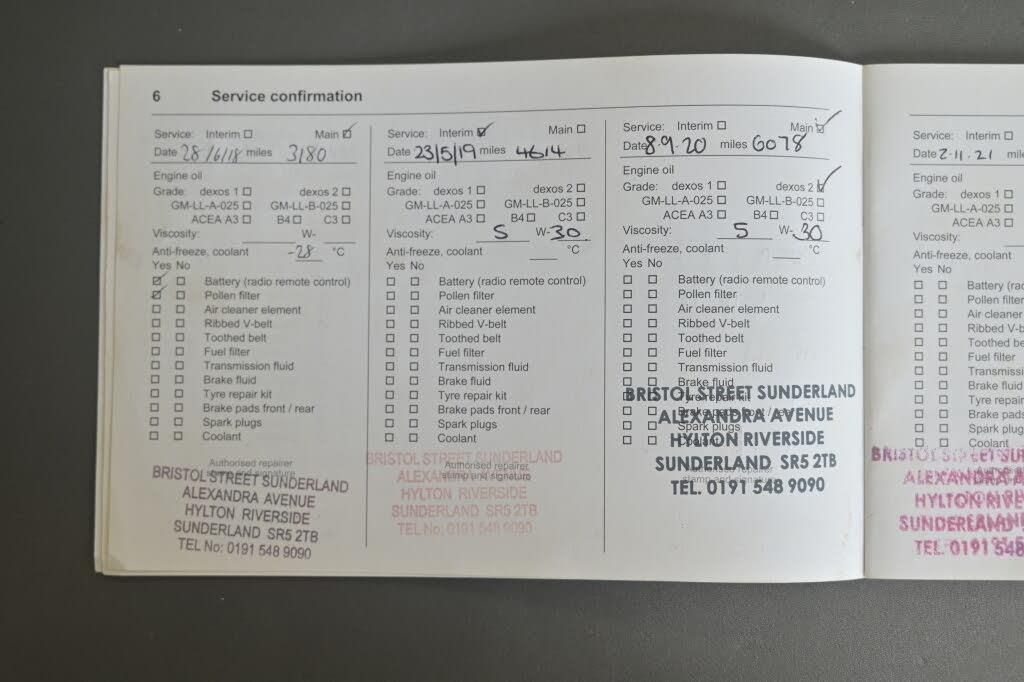 6 Service confirmation
Service: Interim Main
Date 28/6/18 miles 3180
Engine oil
Grade: dexos 1 dexos 2
GM-LL-A-025 GM-LL-B-025
ACEA A3 B4 C3
Viscosity: W-
Anti-freeze, coolant -28 °C
Yes No
Battery (radio remote control)
Pollen filter
Air cleaner element
Ribbed V-belt
Toothed belt
Fuel filter
Transmission fluid
Brake fluid
Tyre repair kit
Brake pads front / rear
Spark plugs
Coolant
Authorised repairer
stamp and signature
BRISTOL STREET SUNDERLAND
ALEXANDRA AVENUE
HYLTON RIVERSIDE
SUNDERLAND SR5 2TB
TEL No: 0191 548 9090
Service: Interim Main
Date 23/5/19 miles 4614
Engine oil
Grade: dexos 1 dexos 2
GM-LL-A-025 GM-LL-B-025
ACEA A3 B4 C3
Viscosity: 5 W-30
Anti-freeze, coolant °C
Yes No
Battery (radio remote control)
Pollen filter
Air cleaner element
Ribbed V-belt
Toothed belt
Fuel filter
Transmission fluid
Brake fluid
Tyre repair kit
Brake pads front / rear
Spark plugs
Coolant
Authorised repairer
stamp and signature
BRISTOL STREET SUNDERLAND
ALEXANDRA AVENUE
HYLTON RIVERSIDE
SUNDERLAND SR5 2TB
TEL No: 0191 548 9090
Service: Interim Main
Date 8.9.20 miles 6078
Engine oil
Grade: dexos 1 dexos 2
GM-LL-A-025 GM-LL-B-025
ACEA A3 B4 C3
Viscosity: 5 W-30
Anti-freeze, coolant °C
Yes No
Battery (radio remote control)
Pollen filter
Air cleaner element
Ribbed V-belt
Toothed belt
Fuel filter
Transmission fluid
Brake fluid
Tyre repair kit
Brake pads front / rear
Spark plugs
Coolant
Authorised repairer
stamp and signature
BRISTOL STREET SUNDERLAND
ALEXANDRA AVENUE
HYLTON RIVERSIDE
SUNDERLAND SR5 2TB
TEL. 0191 548 9090
Service: Interim
Date 2.11.21 miles
Engine oil
Grade: dexos 1
GM-LL-A-025
ACEA A3
Viscosity:
Anti-freeze, coolant
Yes No
Battery (rad
Pollen filter
Air cleaner
Ribbed V-b
Toothed be
Fuel filter
Transmissi
Brake fluid
Tyre repair
Brake pads
Spark plug
Coolant
BRISTOL STREET SU
ALEXANDRA
HYLTON RIVE
SUNDERLAND
TEL. 0191 548